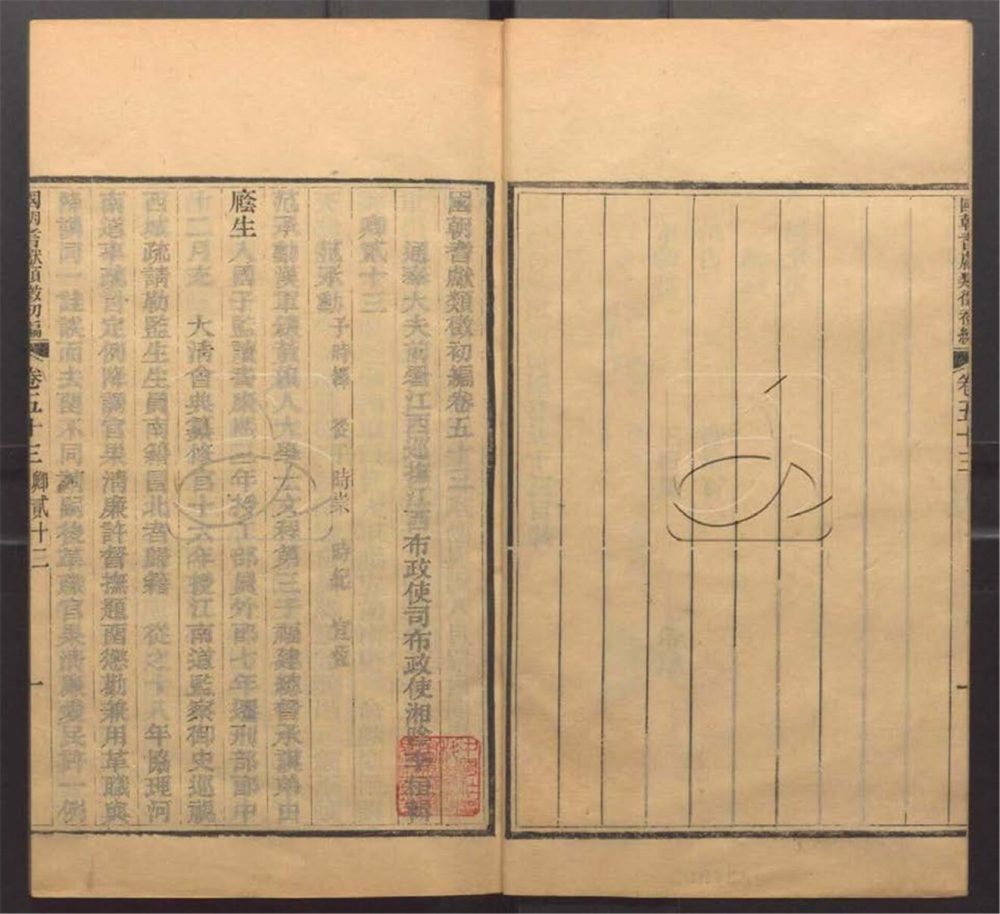 國朝耆獻類徵初編
卷五十三
國朝耆獻類徵初編卷五十三
通奉大夫前署江西巡撫江西布政使司布政使湘陰李桓輯
卿貳十三
范承勳 子時繹 從子時崇 時紀 宜恆
范承勳漢軍鑲黃旗人大學士文程第三子福建總督承謨弟由
廕生入國子監讀書康熙三年授工部員外郎七年遷刑部郎中
十二月充 大清會典纂修官十六年授江南道監察御史巡視
西城疏請勒監生生員南籍冒北者歸籍 從之十八年協理河
南道事疏言定例降調官果清廉許督撫題留懲勸兼用革職與
降調同一詿誤而去留不同請嗣後革職官果清廉愛民許一例
國朝耆獻類徵初編 卷五十三 卿貳十三 一